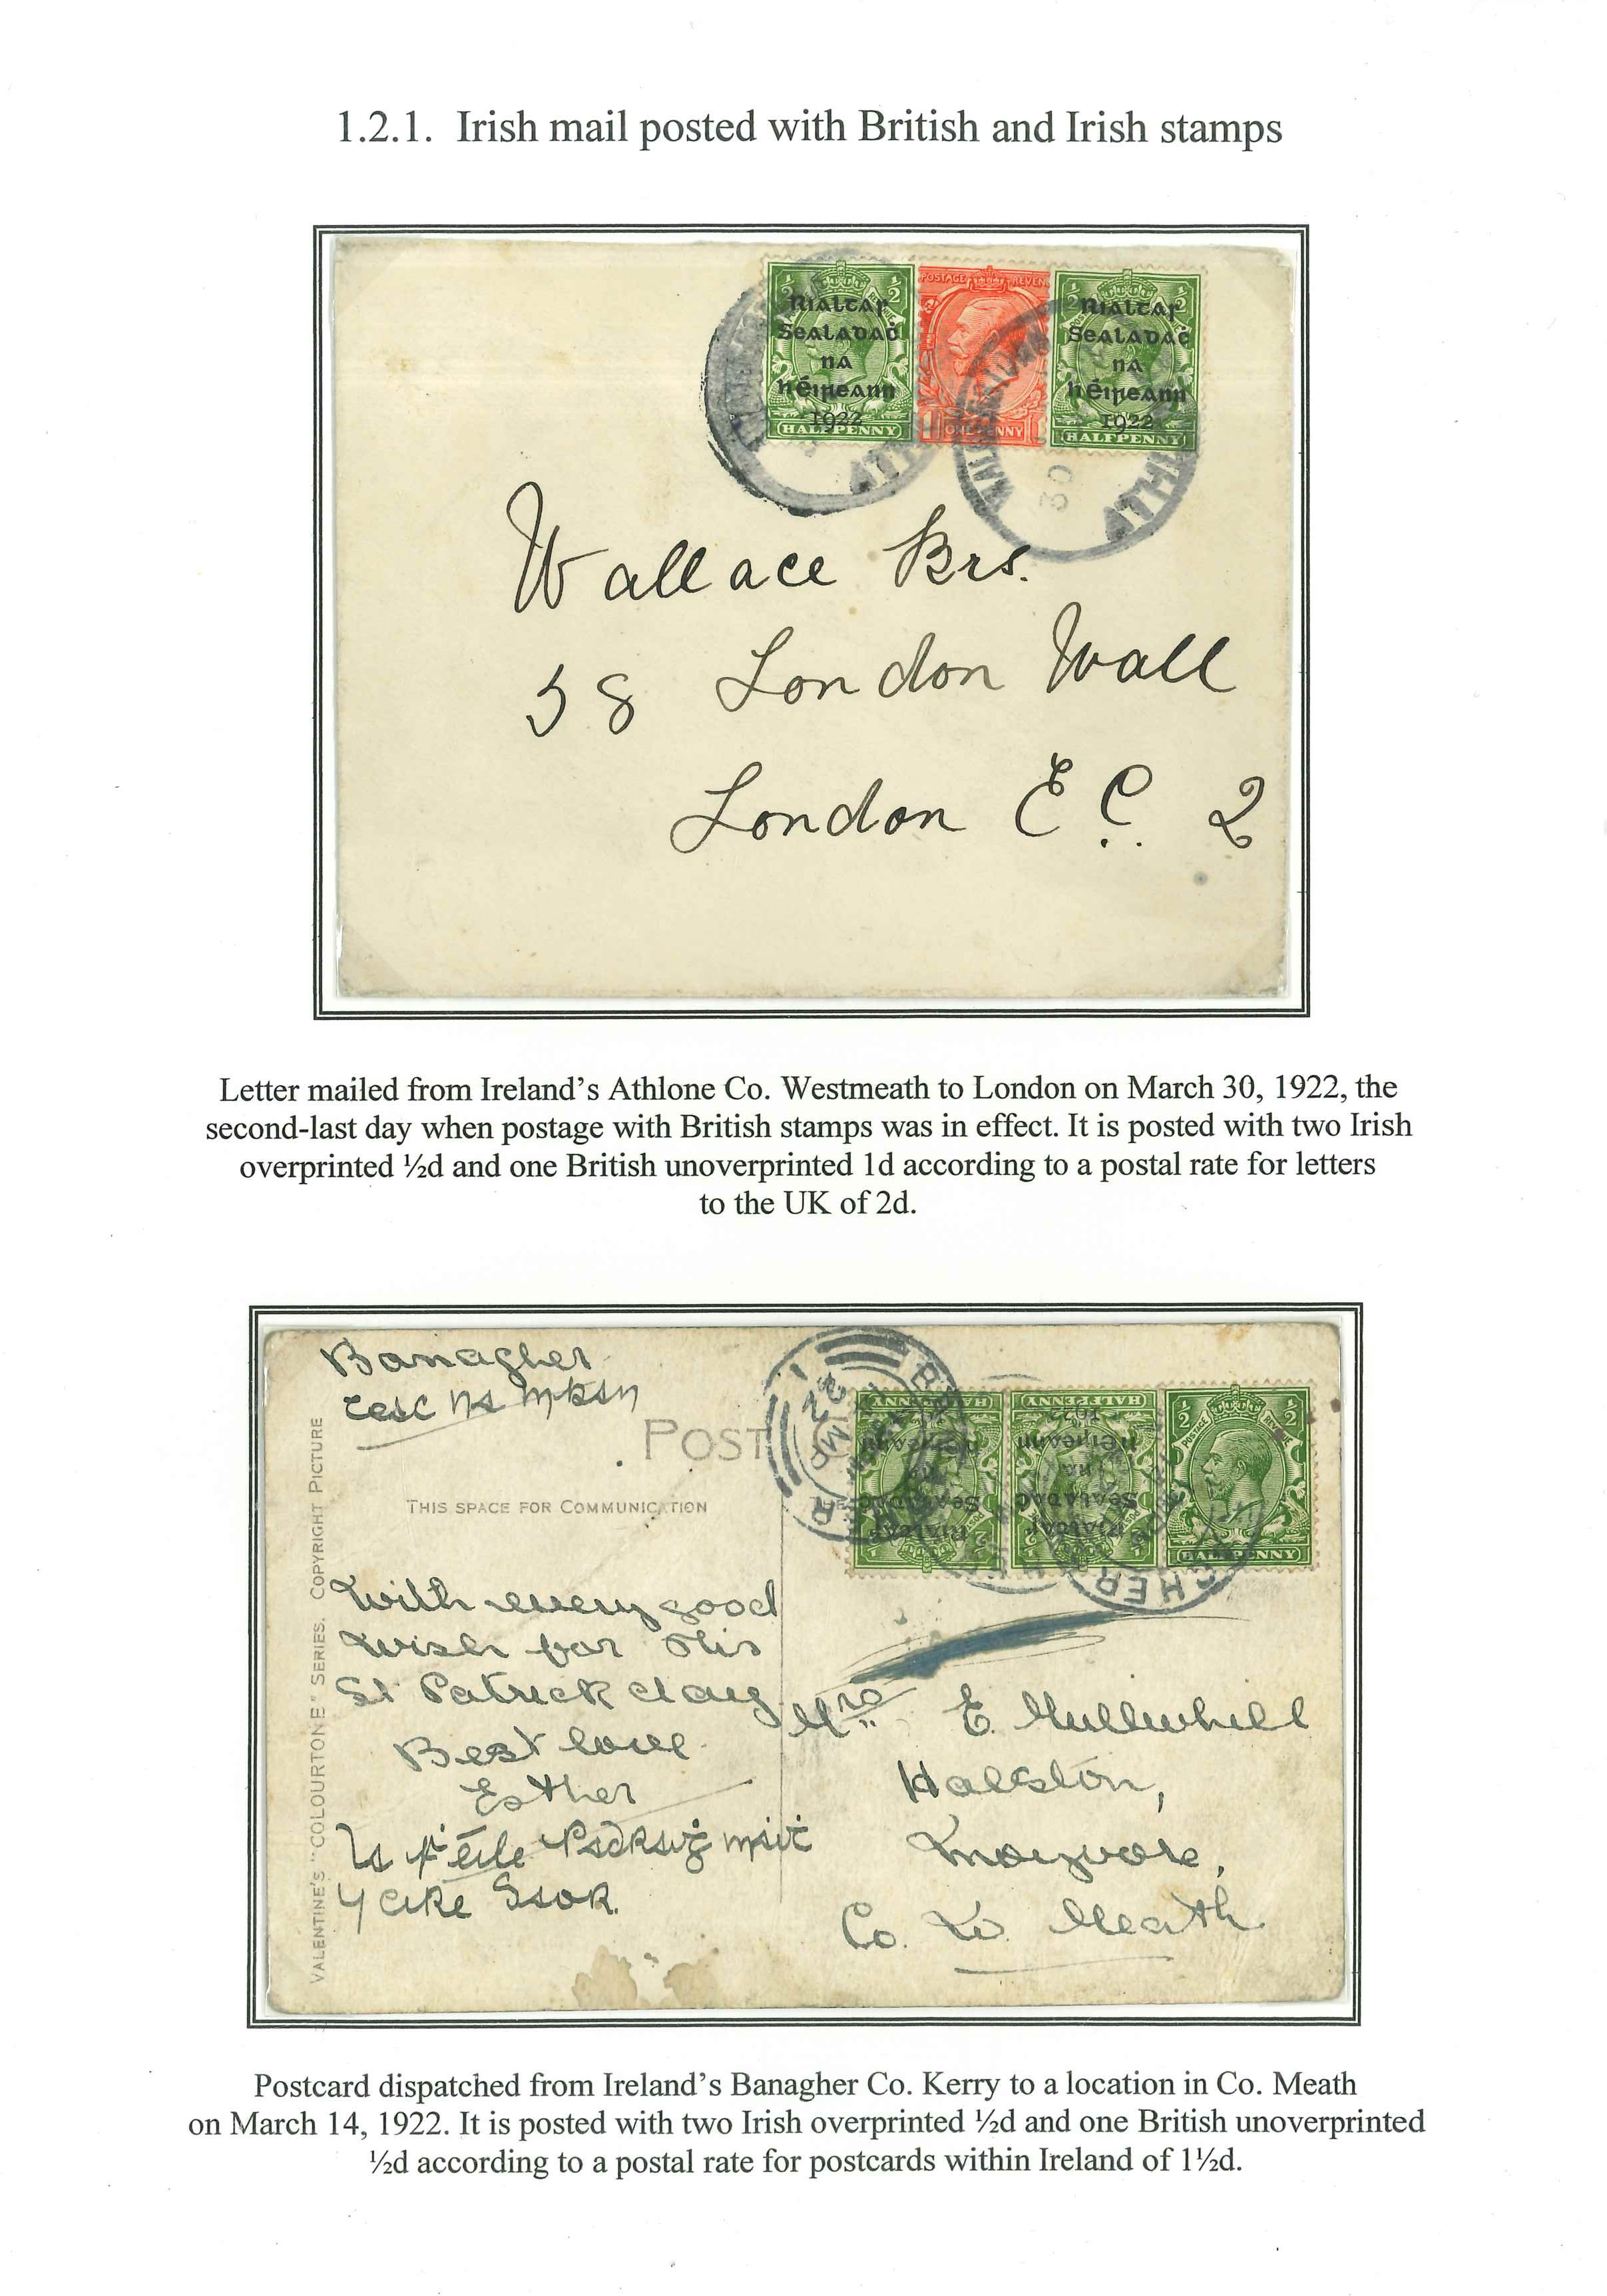 1.2.1. Irish mail posted with British and Irish stamps
½ ½
Rialtas
Sealadaċ
na
hÉireann
1922
HALFPENNY
POSTAGE REVENUE
1 ONE PENNY
½ ½
Rialtas
Sealadaċ
na
hÉireann
1922
HALFPENNY
30
Wallace Brs.
58 London Wall
London E.C. 2
Letter mailed from Ireland’s Athlone Co. Westmeath to London on March 30, 1922, the
second-last day when postage with British stamps was in effect. It is posted with two Irish
overprinted ½d and one British unoverprinted 1d according to a postal rate for letters
to the UK of 2d.
Banagher
POST
THIS SPACE FOR COMMUNICATION
VALENTINE'S "COLOURTONE" SERIES. COPYRIGHT PICTURE
MR
22
HALFPENNY
1922
hÉireann
na
Sealadaċ
Rialtas
HALFPENNY
1922
hÉireann
na
Sealadaċ
Rialtas
½ ½
POSTAGE REVENUE
HALFPENNY
With every good
wish for this
St Patrick day
Best love
Esther
Mrs E.
Co. W. Meath
Postcard dispatched from Ireland’s Banagher Co. Kerry to a location in Co. Meath
on March 14, 1922. It is posted with two Irish overprinted ½d and one British unoverprinted
½d according to a postal rate for postcards within Ireland of 1½d.